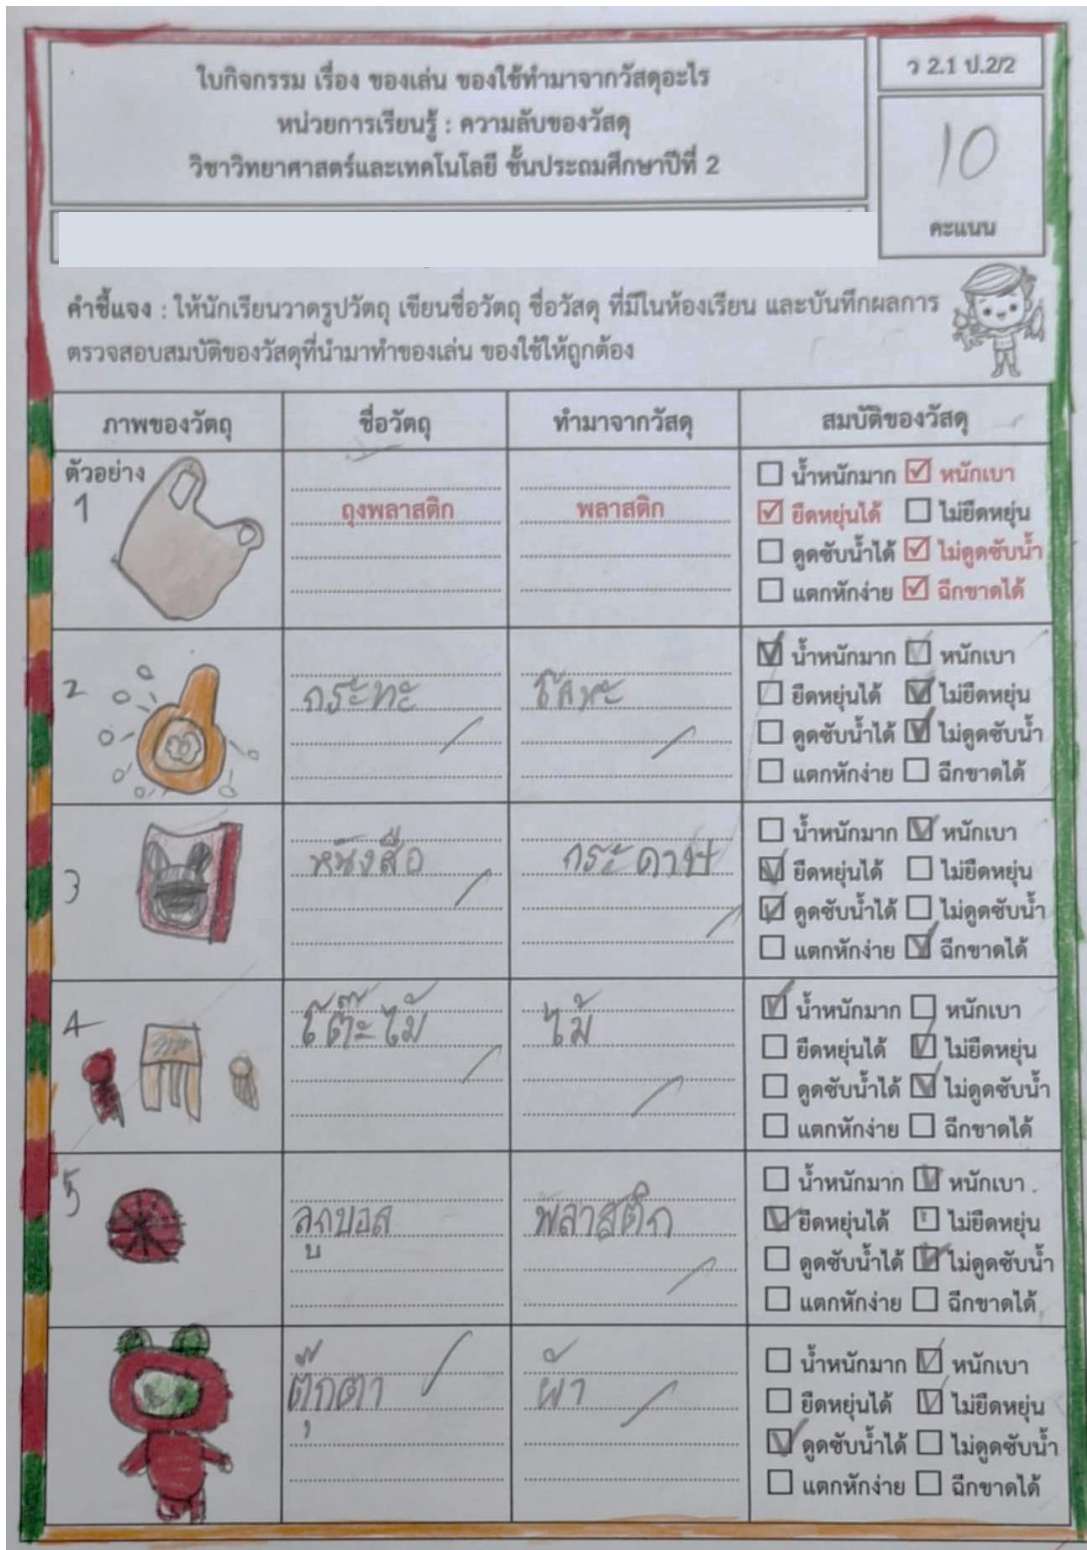 ใบกิจกรรม เรื่อง ของเล่น ของใช้ทำมาจากวัสดุอะไร
หน่วยการเรียนรู้ : ความลับของวัสดุ
วิชาวิทยาศาสตร์และเทคโนโลยี ชั้นประถมศึกษาปีที่ 2
ว 2.1 ป.2/2
10
คะแนน
คำชี้แจง : ให้นักเรียนวาดรูปวัตถุ เขียนชื่อวัตถุ ชื่อวัสดุ ที่มีในห้องเรียน และบันทึกผลการ
ตรวจสอบสมบัติของวัสดุที่นำมาทำของเล่น ของใช้ให้ถูกต้อง
ภาพของวัตถุ ชื่อวัตถุ ทำมาจากวัสดุ สมบัติของวัสดุ
ตัวอย่าง
1
ถุงพลาสติก
พลาสติก
น้ำหนักมาก หนักเบา
ยืดหยุ่นได้ ไม่ยืดหยุ่น
ดูดซับน้ำได้ ไม่ดูดซับน้ำ
แตกหักง่าย ฉีกขาดได้
2
กระทะ
น้ำหนักมาก หนักเบา
ยืดหยุ่นได้ ไม่ยืดหยุ่น
ดูดซับน้ำได้ ไม่ดูดซับน้ำ
แตกหักง่าย ฉีกขาดได้
3
หนังสือ
กระดาษ
น้ำหนักมาก หนักเบา
ยืดหยุ่นได้ ไม่ยืดหยุ่น
ดูดซับน้ำได้ ไม่ดูดซับน้ำ
แตกหักง่าย ฉีกขาดได้
4
โต๊ะไม้
ไม้
น้ำหนักมาก หนักเบา
ยืดหยุ่นได้ ไม่ยืดหยุ่น
ดูดซับน้ำได้ ไม่ดูดซับน้ำ
แตกหักง่าย ฉีกขาดได้
5
ลูกบอล
พลาสติก
น้ำหนักมาก หนักเบา
ยืดหยุ่นได้ ไม่ยืดหยุ่น
ดูดซับน้ำได้ ไม่ดูดซับน้ำ
แตกหักง่าย ฉีกขาดได้
ตุ๊กตา
ผ้า
น้ำหนักมาก หนักเบา
ยืดหยุ่นได้ ไม่ยืดหยุ่น
ดูดซับน้ำได้ ไม่ดูดซับน้ำ
แตกหักง่าย ฉีกขาดได้